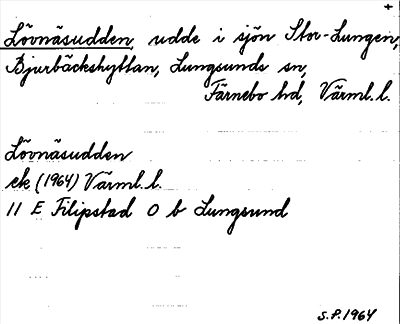 +
Lövnäsudden, udde i sjön Stor-Lungen,
Bjurbäckshyttan, Lungsunds sn,
Färnebo hd, Värml. l.
Lövnäsudden
ek (1964) Värml. l.
11 E Filipstad 0 b Lungsund
S.P. 1964